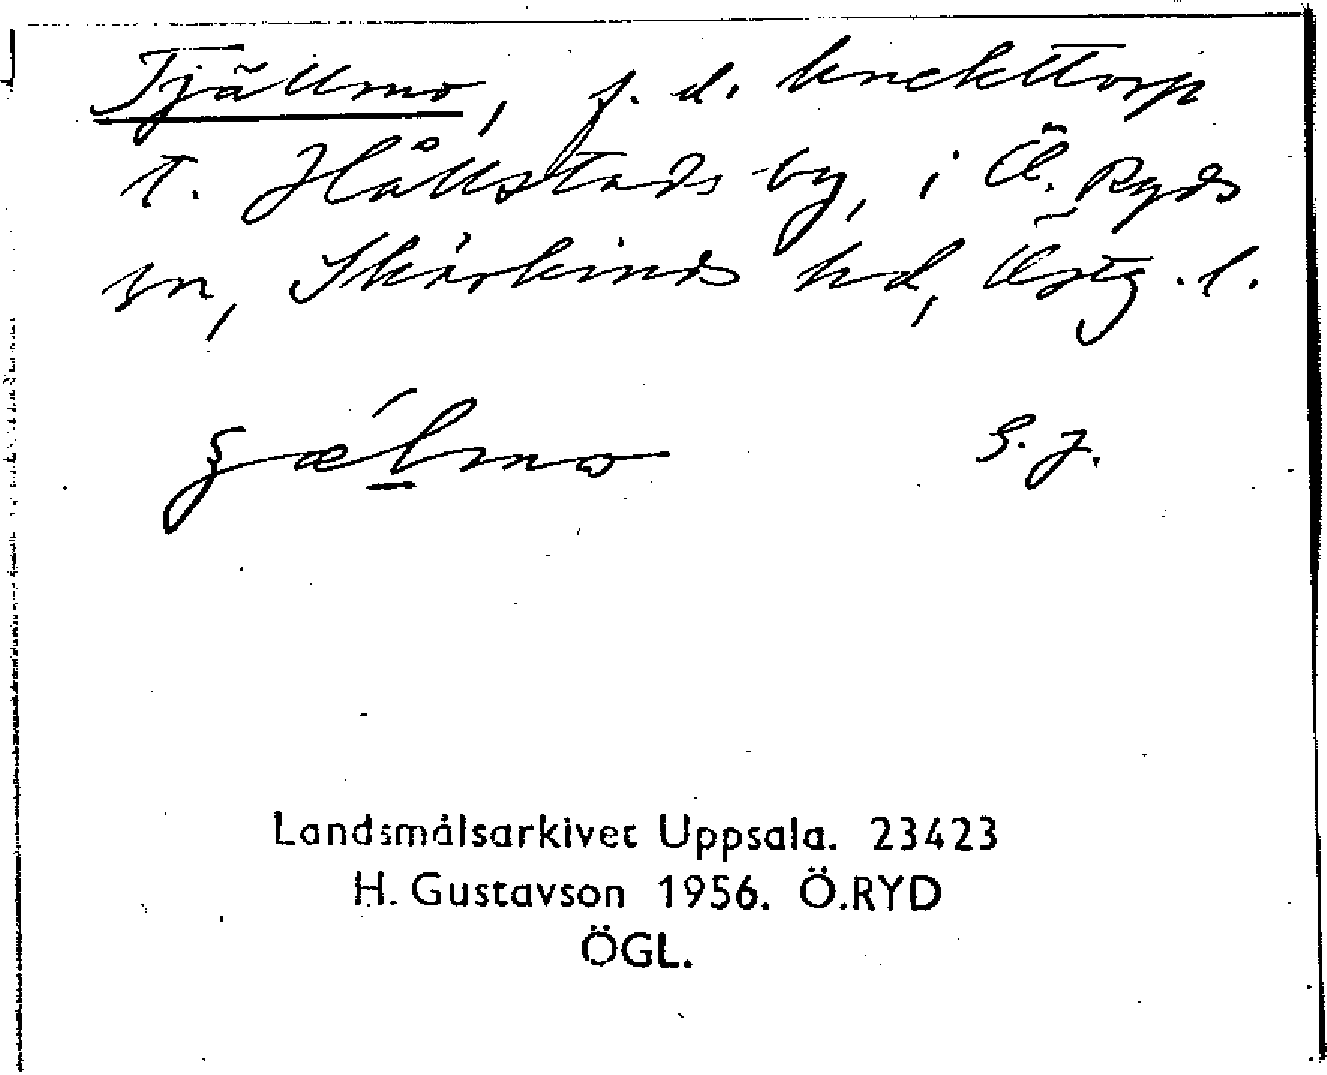 Tjällmo, f.d. knekttorp
t. Hållstads by, i Ö. Ryds
sn, Skärkinds hd, Östg. l.
S. J.
Landsmålsarkivet Uppsala. 23423
H. Gustavson 1956. Ö.RYD
ÖGL.